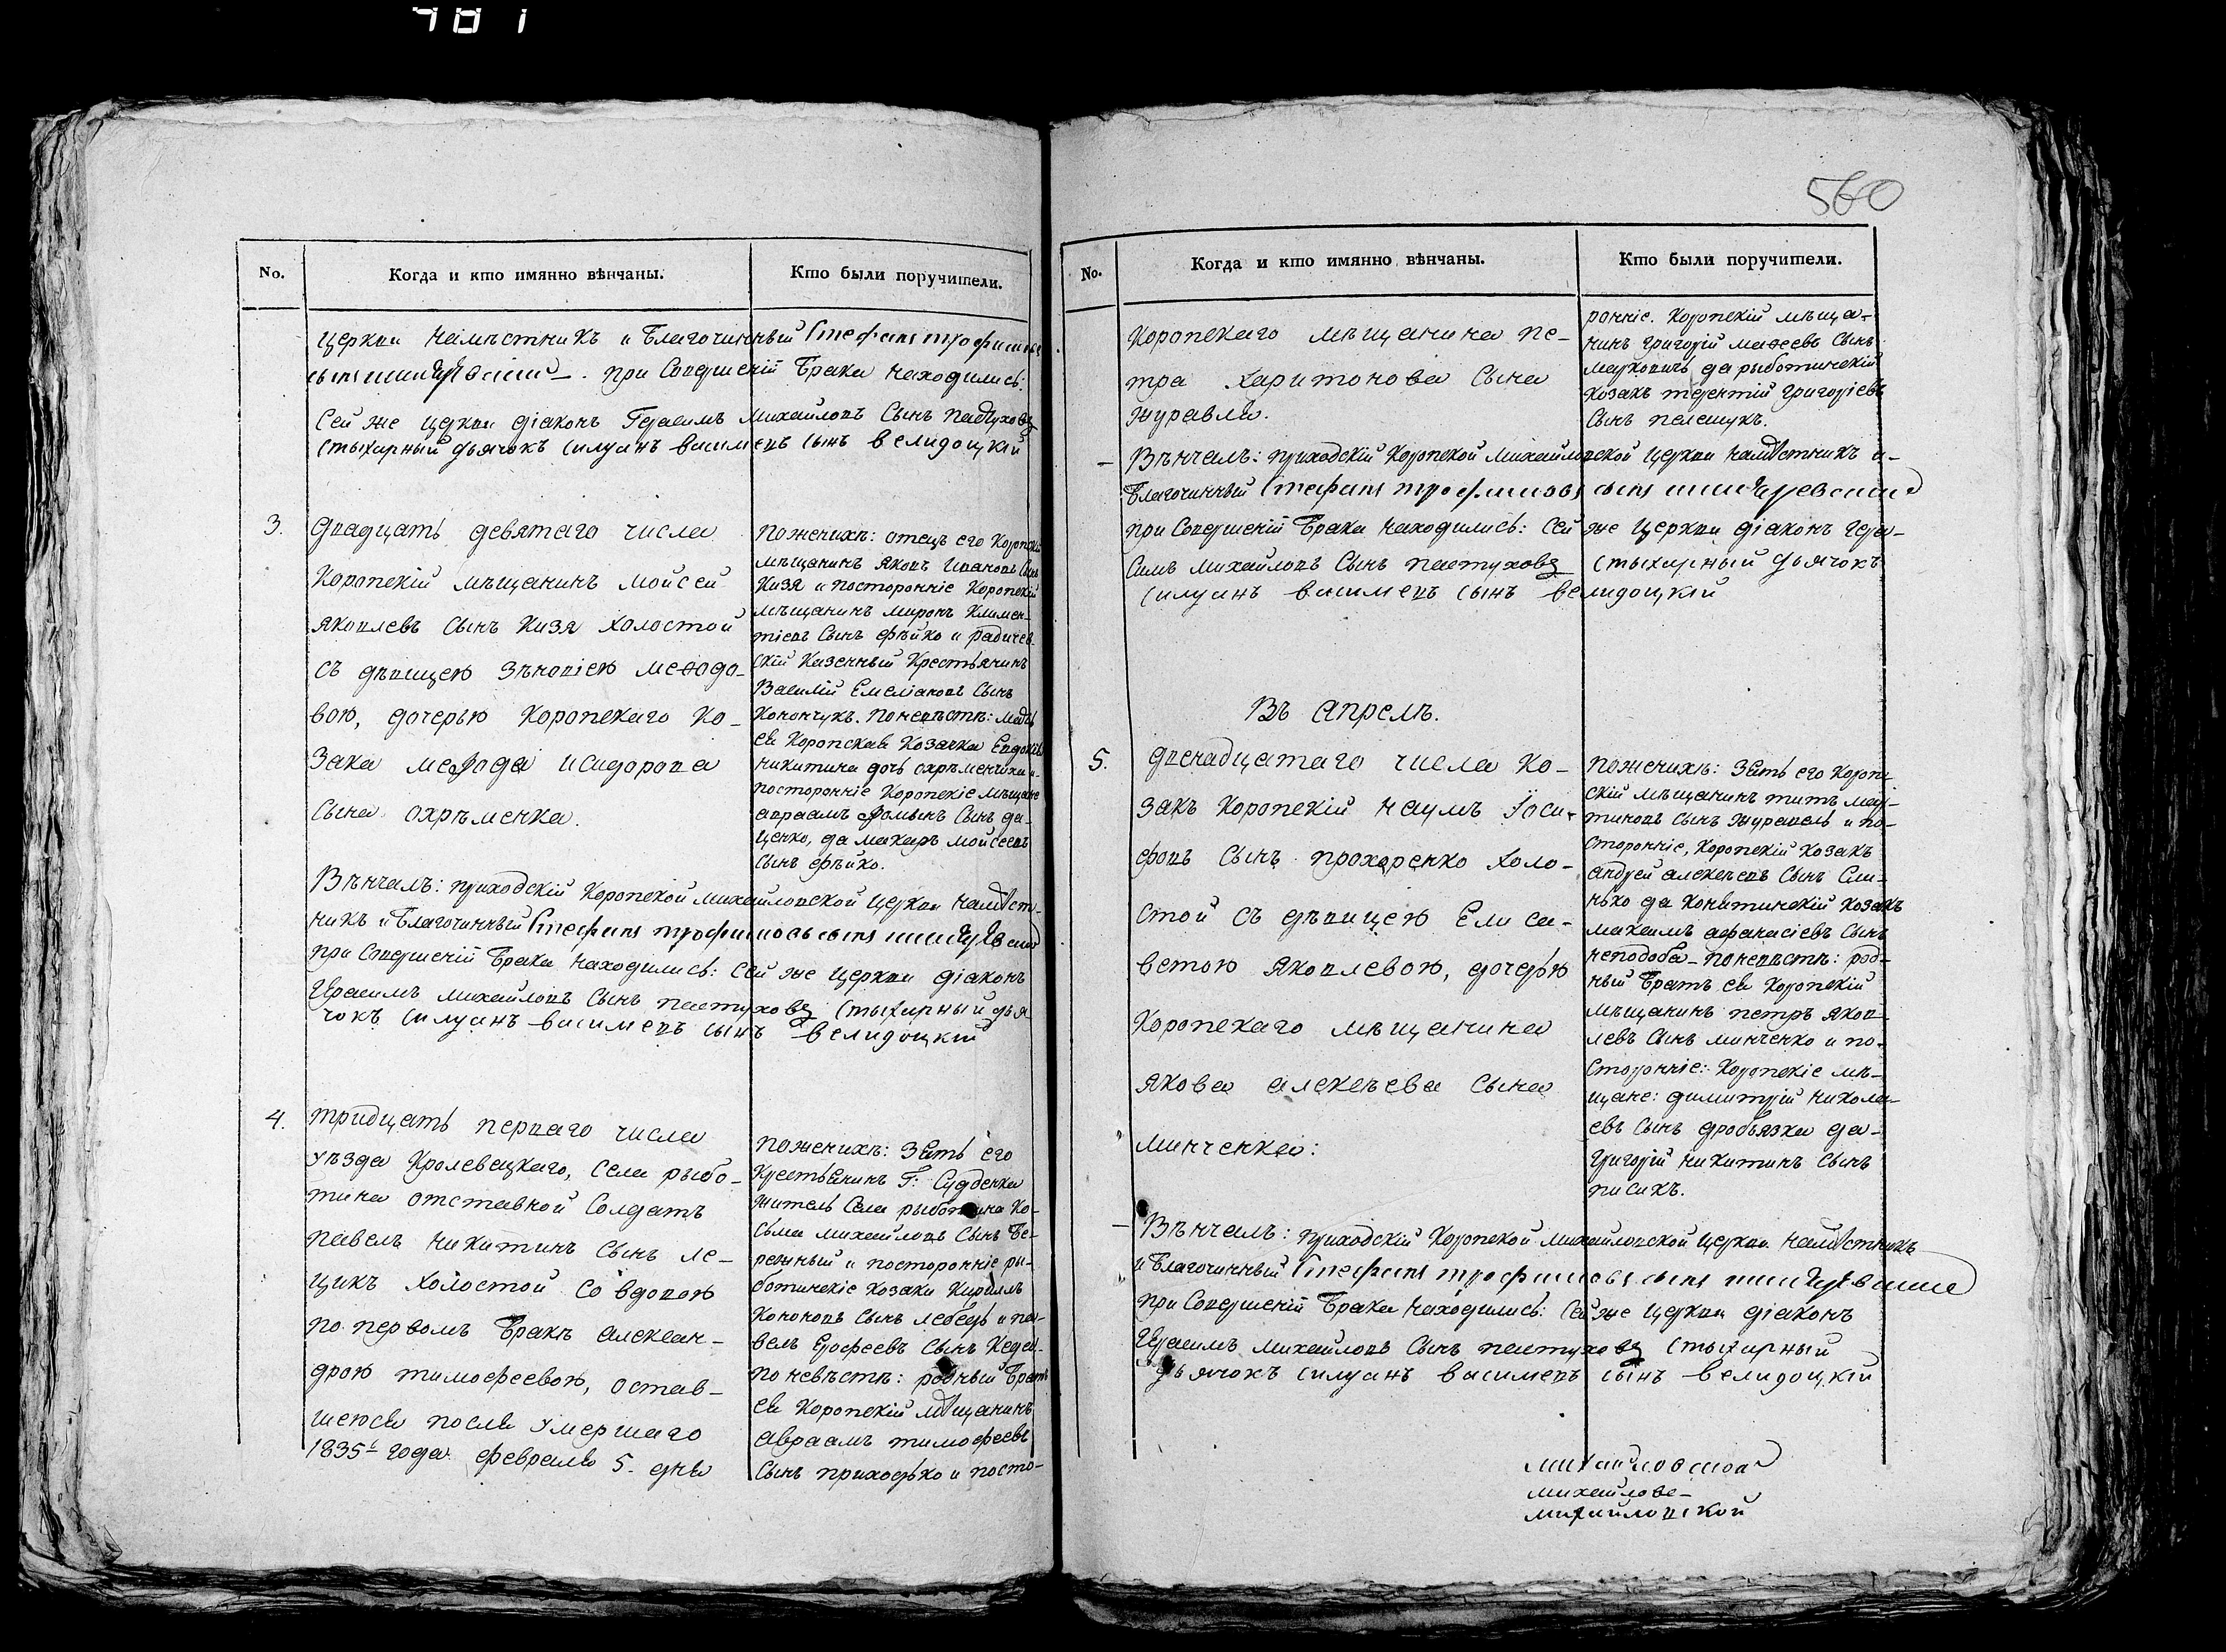 781
No.
Когда и кто имянно вѣнчаны.
Кто были поручители.
церкви намѣстникъ и Благочинный Стефанъ трофимовъ
сынъ при Совершеніи Брака находились:
Сей же церкви діаконъ Герасимъ михайловъ Сынъ Пастуховъ
стыхарный дьячокъ силуанъ васильевъ сынъ велидоцкій
3.
двадцать девятаго числа
Коропскій мѣщанинъ мойсей
яковлевъ Сынъ Кизя холостой
съ дѣвицею Зѣновіею меѳодо-
вою, дочерью Коропскаго Ко-
зака меѳодія исидорова
Сына охрѣменка.
По женихѣ: отецъ его Коропскій
мѣщанинъ яковъ Ивановъ Сынъ
Кизя и посторонніе Коропскій
мѣщанинъ миронъ Климен-
тіевъ Сынъ фѣйко и радичев-
скій Казенный Крестьянинъ
Василій Емеліановъ Сынъ
Конончукъ. По невѣстѣ: мать
ея Коропская Козачка Евдокія
никитина дочь охрѣменчиха и
посторонніе Коропскіе мѣщане
авраамъ ѳоминъ Сынъ да-
ценко, да макаръ мойсеевъ
Сынъ фѣйко.
Вѣнчалъ: приходскій Коропской михайловской церкви намѣст-
никъ и Благочинный Стефанъ трофимовъ сынъ
при Совершеніи Брака находились: Сей же церкви діаконъ
Герасимъ михайловъ Сынъ пастуховъ стыхарный дья-
чокъ силуанъ васильевъ сынъ велидоцкій
4.
тридцать перваго числа
уѣзда Кролевецкаго, села рыбо-
тина отставной Солдатъ
павелъ никитинъ Сынъ ле-
щикъ холостой со вдовою
по первомъ Бракѣ алексан-
дрою тимофеевою, остав-
шеюся после умершаго
1835г года февраля 5. дня
По женихѣ: Зять его
Крестьянинъ Г: Судденка
житель Села рыботина Ко-
сьма михайловъ Сынъ Бе-
режный и посторонніе ры-
ботинскіе Козаки Кириллъ
Кононовъ Сынъ лебедь и па-
велъ Ерофеевъ Сынъ
По невѣстѣ: родный Братъ
ея Коропскій мѣщанинъ
авраамъ тимофеевъ
Сынъ приходько и посто-
560
No.
Когда и кто имянно вѣнчаны.
Кто были поручители.
Коропскаго мѣщанина пе-
тра харитонова Сына
журавля.
ронніе. Коропскій мѣща-
нинъ григорій матѳеевъ Сынъ
марковичъ да рыботинскій
Козакъ терентій григоріевъ
Сынъ пелешукъ.
Вѣнчалъ: приходскій Коропской михайловской церкви намѣстникъ и
Благочинный Стефанъ трофимовъ сынъ
при Совершеніи Брака находились: Сей же церкви діаконъ Гера-
Симъ михайловъ Сынъ пастуховъ стыхарный дьячокъ
силуанъ васильевъ сынъ велидоцкій
Въ апрелѣ.
5.
двенадцатаго числа Ко-
закъ Коропскій наумъ Іоси-
фовъ Сынъ прохоренко холо-
стой съ дѣвицею Елиса-
ветою яковлевою, дочерью
Коропскаго мѣщанина
якова алексѣева Сына
минченка:
По женихѣ: Зять его Короп-
скій мѣщанинъ титъ мар-
тиновъ Сынъ журавель и по-
сторонніе, Коропскій Козакъ
андрей алексѣевъ Сынъ Сли-
нько да Конятинскій Козакъ
максимъ афанасіевъ Сынъ
неподоба По невѣстѣ: род-
ный Братъ ея Коропскій
мѣщанинъ петръ яков-
левъ Сынъ минченко и по-
сторонніе: Коропскіе мѣ-
щане: димитрій никола-
евъ Сынъ дробязка да
григорій никитинъ Сынъ
писикъ.
Вѣнчалъ: приходскій Коропской михайловской церкви намѣстникъ
и Благочинный Стефанъ трофимовъ сынъ
при Совершеніи Брака находились: Сей же церкви діаконъ
Герасимъ михайловъ Сынъ пастуховъ стыхарный
дьячокъ силуанъ васильевъ сынъ велидоцкій
михайловской
михайловс-
михайловской